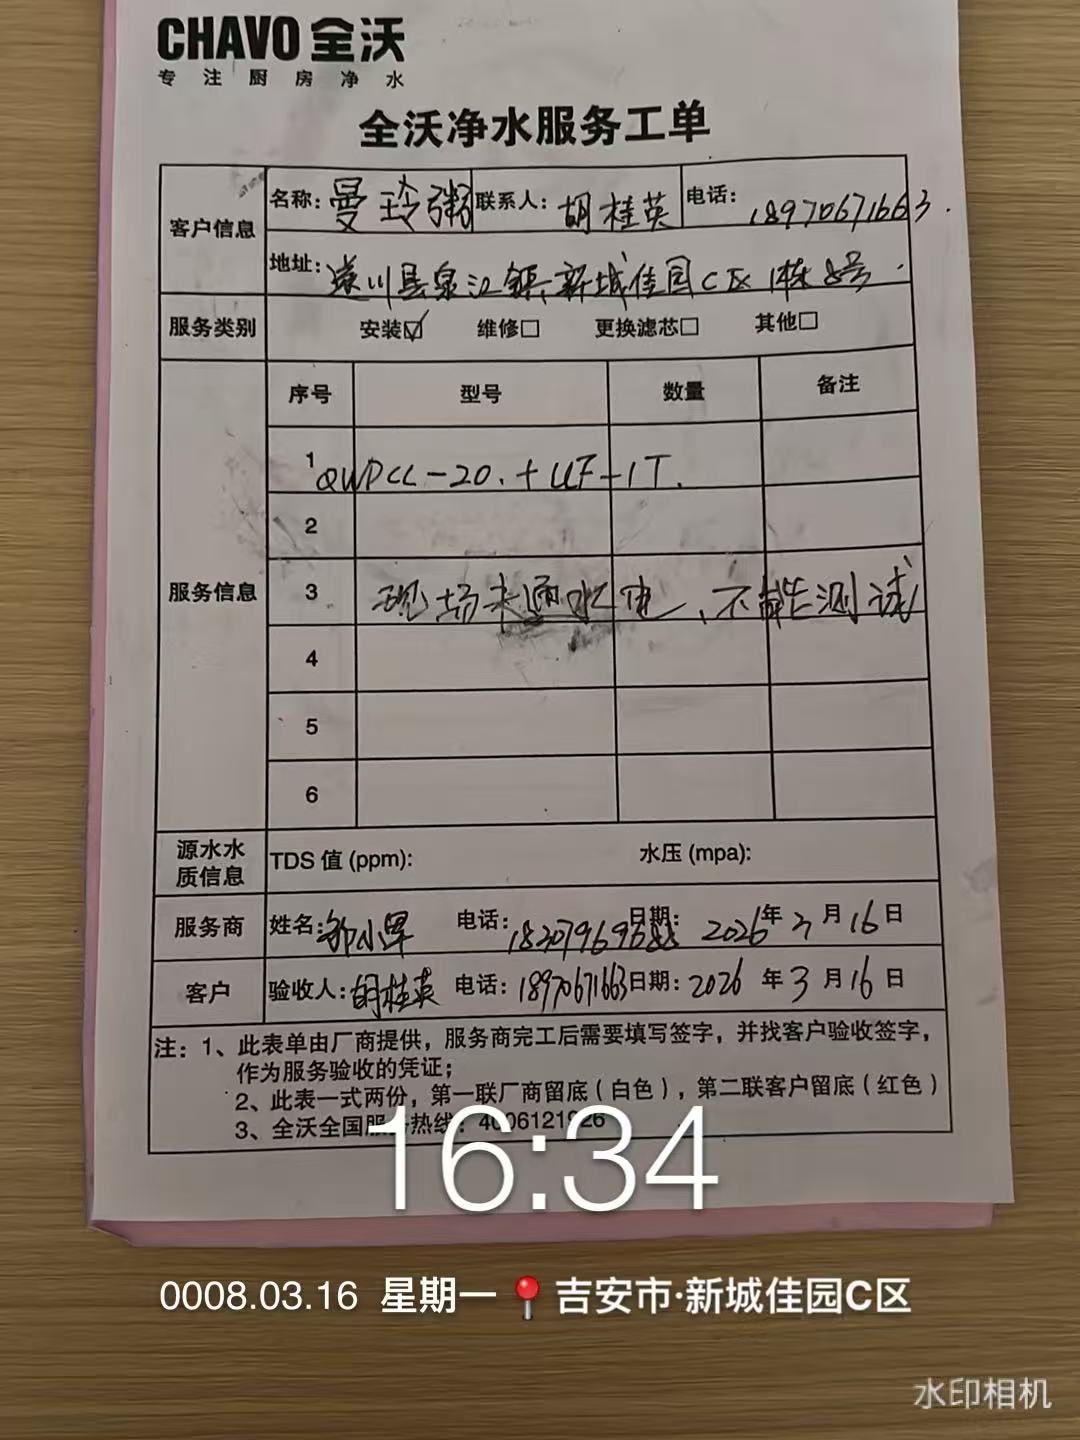 CHAVO 全沃
专注厨房净水
全沃净水服务工单
客户信息
名称: 曼玲粥 联系人: 胡桂英 电话: 18970671663.
地址: 遂川县泉江镇新城佳园C区1栋8号.
服务类别 安装☑ 维修□ 更换滤芯□ 其他□
服务信息
序号 型号 数量 备注
1 QWDCL-20.+UF-1T.
2
3 现场未通水电、不能测试
4
5
6
源水水质信息 TDS 值 (ppm): 水压 (mpa):
服务商 姓名: 电话: 日期: 2026年3月16日
客户 验收人: 胡桂英 电话: 18970671663 日期: 2026年3月16日
注: 1、此表单由厂商提供，服务商完工后需要填写签字，并找客户验收签字，
作为服务验收的凭证；
2、此表一式两份，第一联厂商留底（白色），第二联客户留底（红色）
3、全沃全国服务热线: 4006121926
16:34
0008.03.16 星期一 吉安市·新城佳园C区
水印相机